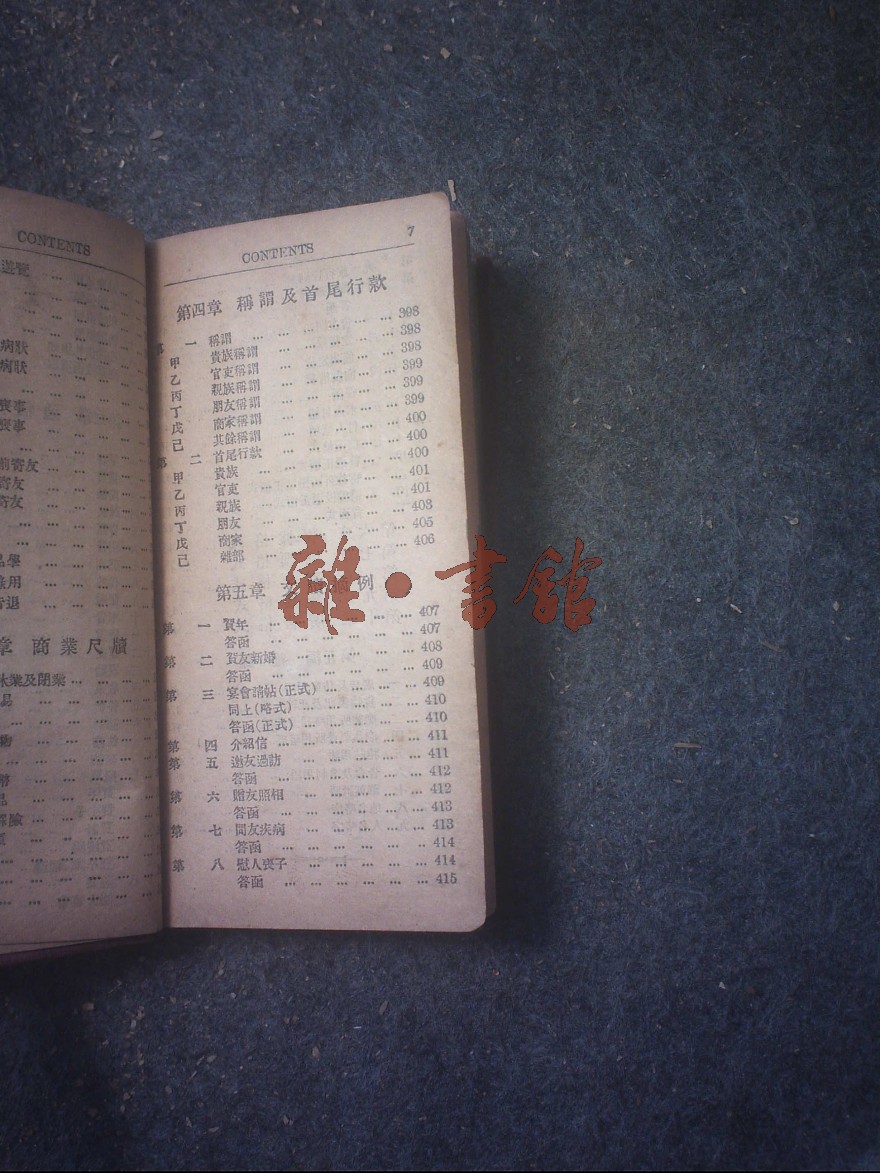 CONTENTS
遊覽
病狀
病狀
喪事
喪事
前寄友
寄友
寄友
品學
錄用
告退
章 商業尺牘
休業及閉業
易
物
幣
保險
CONTENTS 7
第四章 稱謂及首尾行款
第 一 稱謂 … … … … … … 398
甲 貴族稱謂 … … … … … 398
乙 官吏稱謂 … … … … … 398
丙 親族稱謂 … … … … … 399
丁 朋友稱謂 … … … … … 399
戊 商家稱謂 … … … … … 399
己 其餘稱謂 … … … … … 400
第 二 首尾行款 … … … … … 400
甲 貴族 … … … … … … 400
乙 官吏 … … … … … … 401
丙 親族 … … … … … … 401
丁 朋友 … … … … … … 403
戊 商家 … … … … … … 405
己 雜部 … … … … … … 406
第五章 例
第 一 賀年 … … … … … … 407
答函 … … … … … … 407
第 二 賀友新婚 … … … … … 408
答函 … … … … … … 409
第 三 宴會請帖(正式) … … … … 409
同上(略式) … … … … … 410
答函(正式) … … … … … 410
第 四 介紹信 … … … … … … 411
第 五 邀友過訪 … … … … … 411
答函 … … … … … … 412
第 六 贈友照相 … … … … … 412
答函 … … … … … … 413
第 七 問友疾病 … … … … … 413
答函 … … … … … … 414
第 八 慰人喪子 … … … … … 414
答函 … … … … … … 415
雜·書館